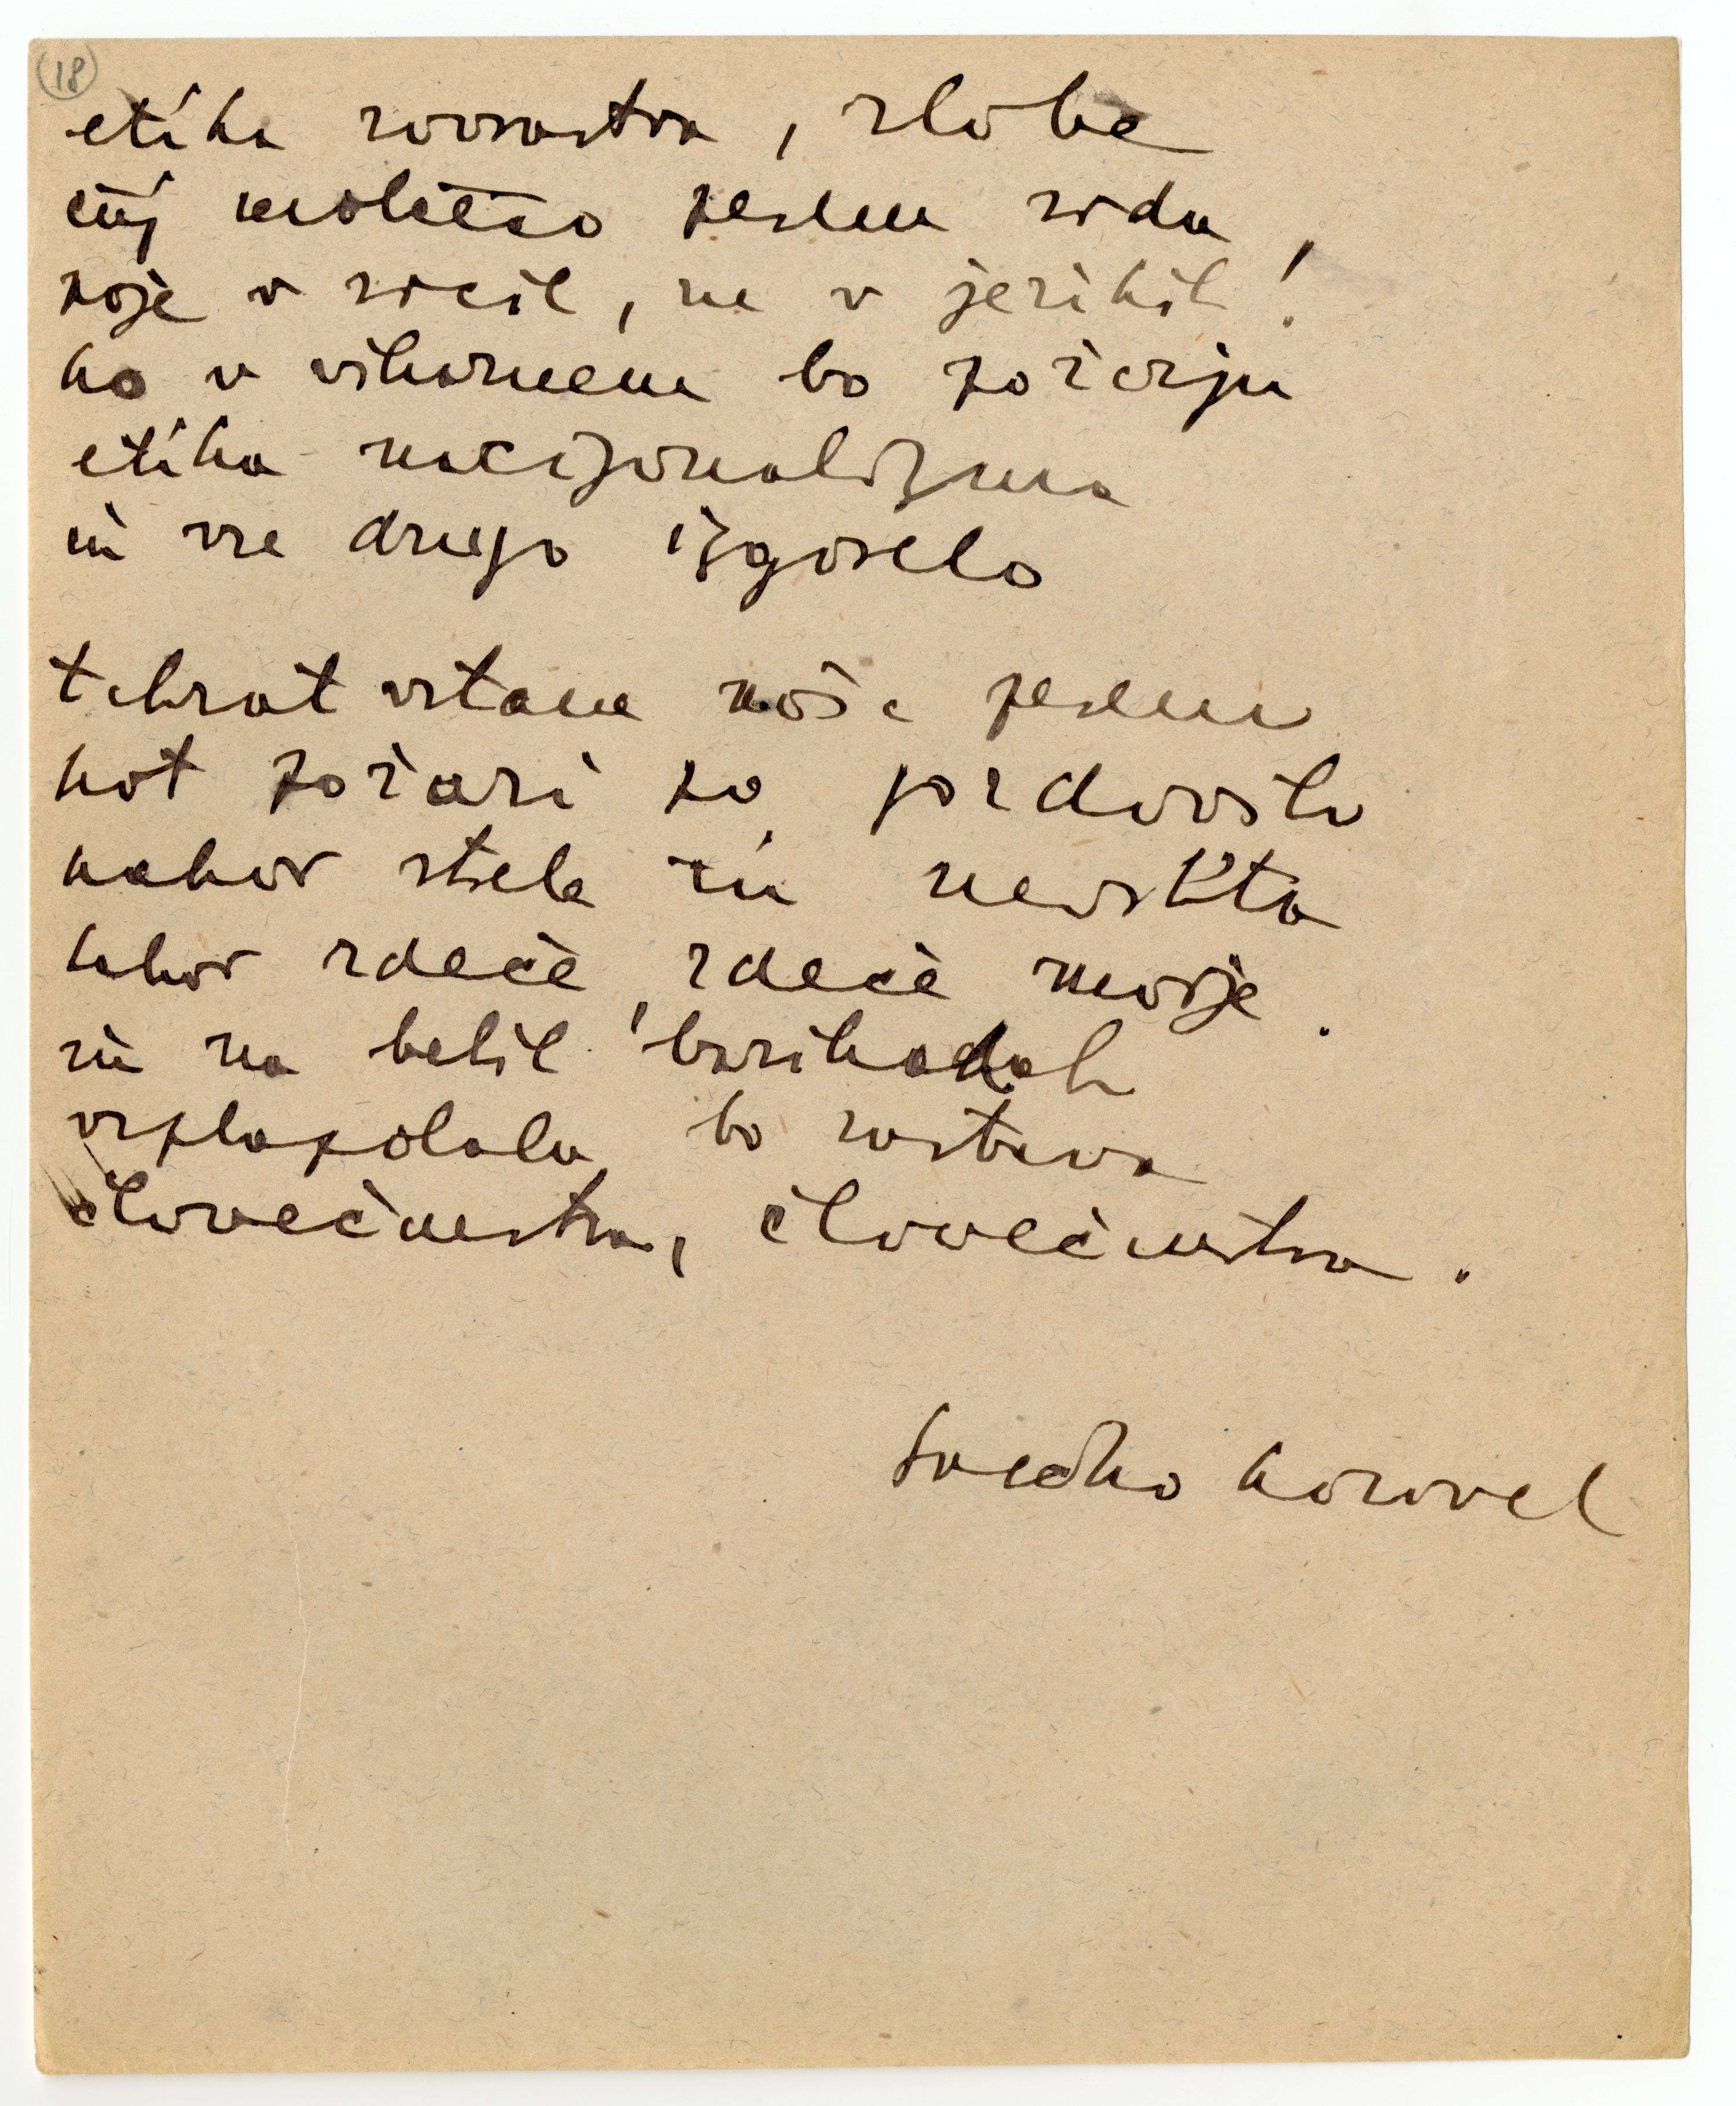 18
etika sovraštva, zlobe
naj molčečo pesem srda,
poje v srcih, ne v jezikih!
ko v viharnem bo požarju
etika nacijonalizma
in vse drugo izgorelo
takrat vstane naša pesem
kot požari po gozdovih
kakor strela in nevihta
kakor rdeče, rdeče morje.
in na belih barikadah
vzplapolala bo zastava
človečanstva, človečanstva.
Srečko Kosovel